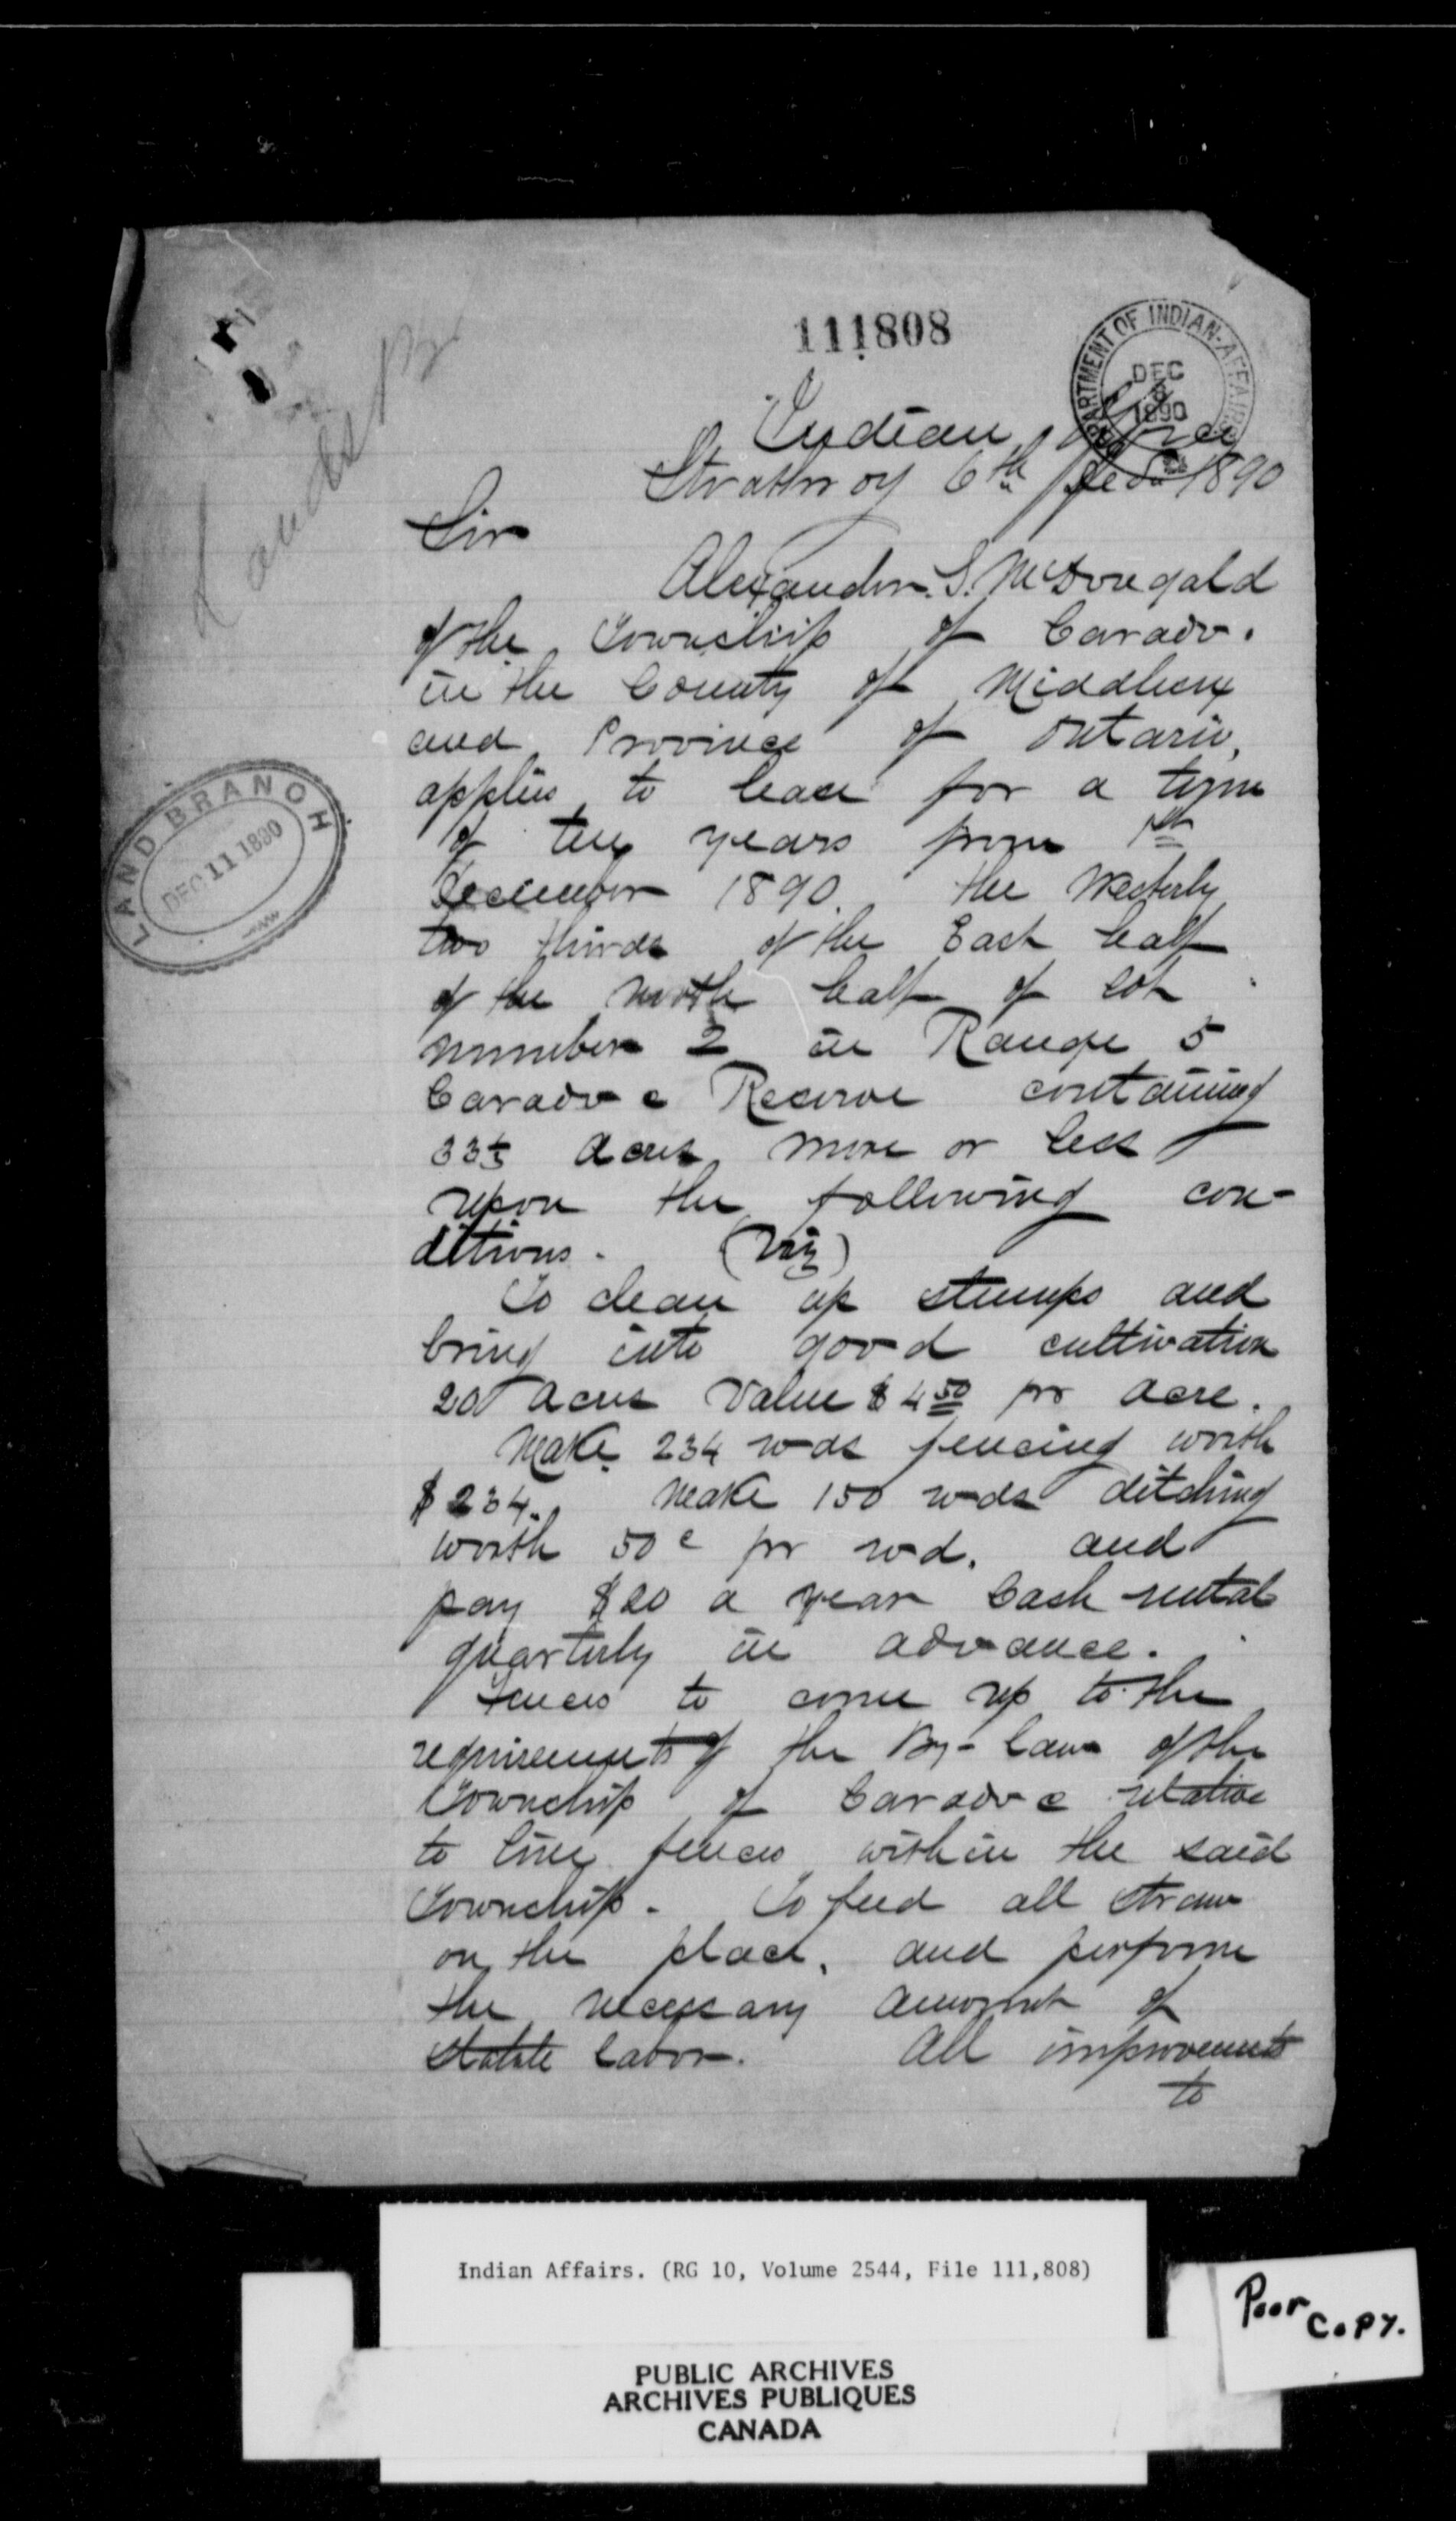 111808
DEPARTMENT OF INDIAN AFFAIRS
DEC
8
1890
Lands Br
Indian Office
Strathroy 6th Dec 1890
Sir
Alexander S. McDougald
of the Township of Caradoc.
in the County of Middlesex
and Province of Ontario,
applies to lease for a term
of ten years from 1st
December 1890. the Westerly
two thirds of the East half
of the north half of lot
number 2 in Range 5
Caradoc Reserve containing
33⅓ acres more or less
upon the following con-
ditions. (Viz)
LAND BRANCH
DEC 11 1890
To clean up stumps and
bring into good cultivation
20 acres value $4.50 pr acre.
Make 234 rods fencing worth
$234. Make 150 rods ditching
worth 50c pr rod. and
pay $20 a year Cash rental
quarterly in advance.
Fences to come up to the
requirements of the By-laws of the
Township of Caradoc relative
to line fences within the said
Township. To feed all straw
on the place, and perform
the necessary amount of
statute labor. All improvements
to
Indian Affairs. (RG 10, Volume 2544, File 111,808)
PUBLIC ARCHIVES
ARCHIVES PUBLIQUES
CANADA
Poor
COPY.